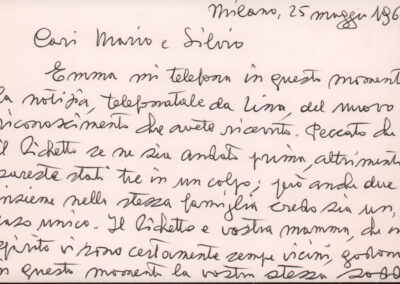 Milano, 25 maggio 196
Cari Mario e Silvio
Emma mi telefona in questo momento
la notizia, telefonatale da Lina, del nuovo
riconoscimento che avete ricevuto. Peccato che
il Richetto se ne sia andato prima, altrimenti
sareste stati tre in un colpo; però anche due
insieme nella stessa famiglia credo sia un
caso unico. Il Richetto e vostra mamma, che in
spirito vi sono certamente sempre vicini, godono
in questo momento la vostra stessa